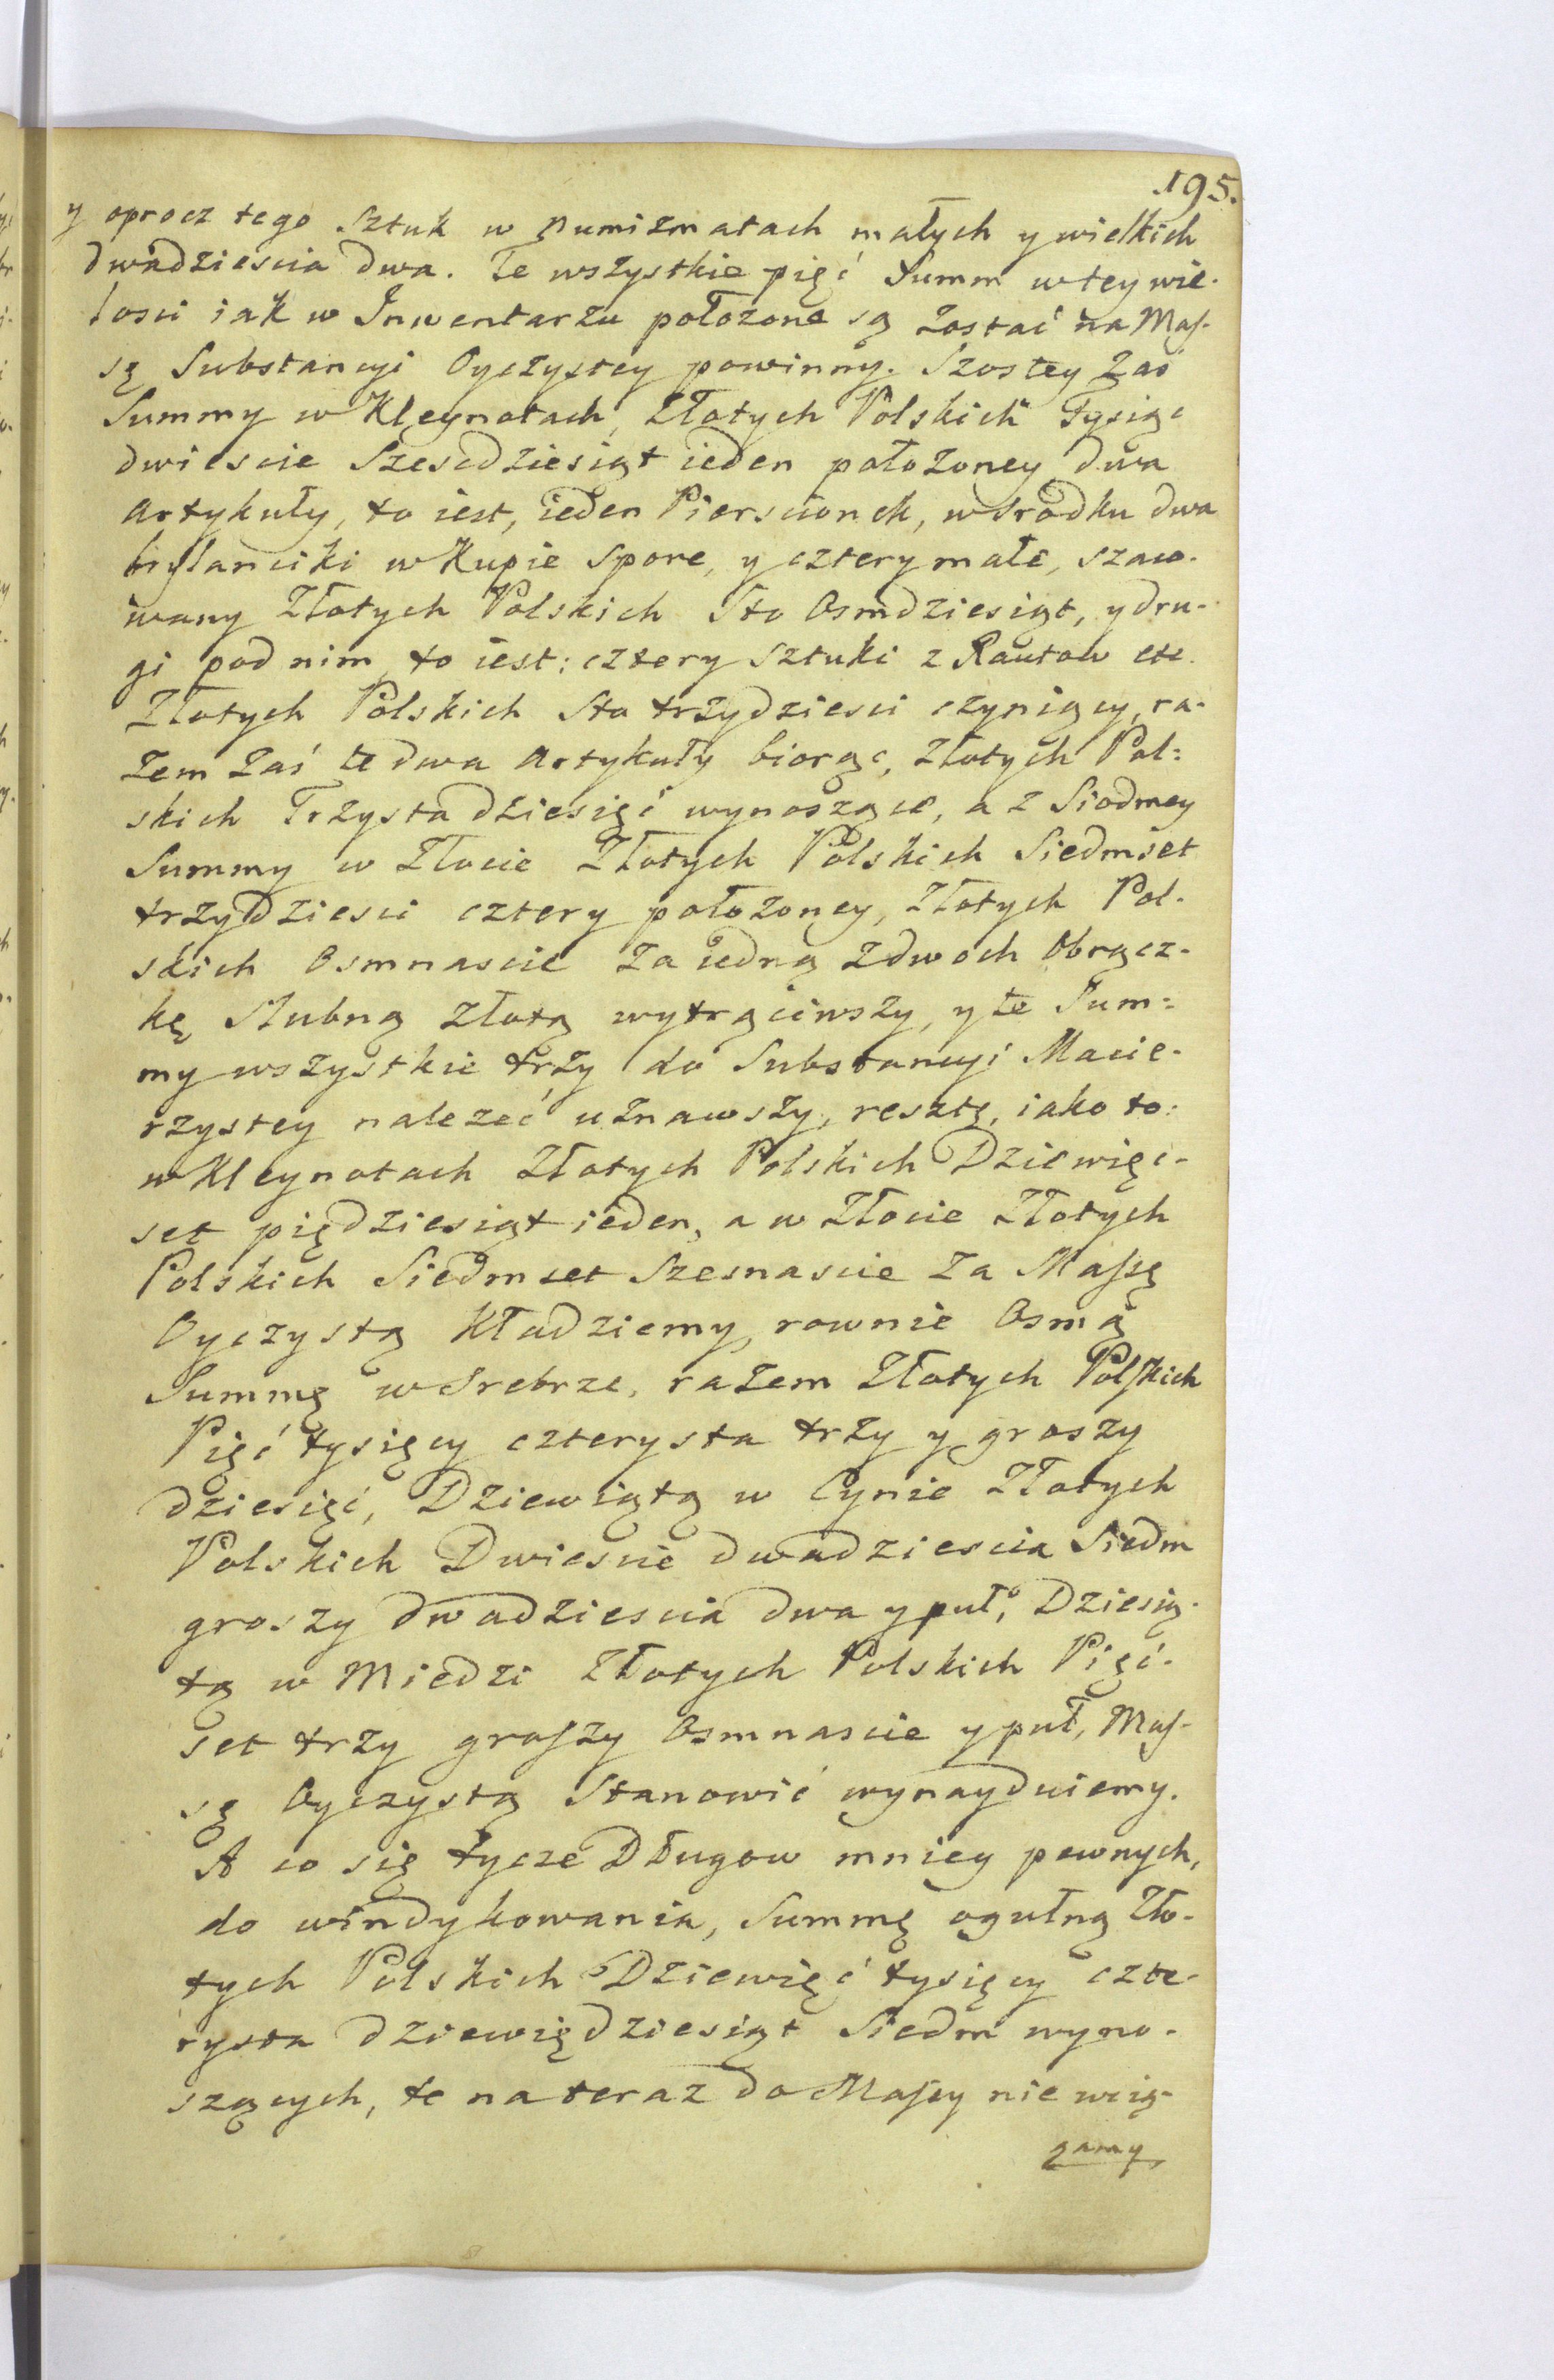 195.
y oprocz tego Sztuk w Numizmatach małych y wielkich
dwadziescia dwa. Te wszystkie pięć Summ w tey wie-
losci iak w Inwentarzu położone są zostać na Mas-
sę Substancyi Oyczystey powinny. Szostey zaś
Summy w Kleynotach, Złotych Polskich Tysiąc
dwiescie Szescdziesiąt ieden położoney dwa
Artykuły, to iest, ieden Pierscionek, w srodku dwa
brylanciki w Kupie Spore, y cztery małe, szaco-
wany Złotych Polskich Sto Osmdziesiąt, y dru-
gi pod nim to iest: cztery Sztuki z Rautow etc.
Złotych Polskich Sto trzydziesci czyniący, ra-
zem zaś te dwa Artykuły biorąc, Złotych Pol=
skich Trzysta dziesięć wynoszące, a z Siodmey
Summy w Złocie Złotych Polskich Siedmset
trzydziesci cztery położoney, Złotych Pol-
skich Osmnascie za iedną z dwoch Obrącz-
kę Slubną złotą wytrąciwszy, y te Sum=
my wszystkie trzy do Substancyi Macie-
rzystey należeć uznawszy, resztę, iako to:
w Kleynotach Złotych Polskich Dziewięć-
set pięćdziesiąt ieden, a w Złocie Złotych
Polskich Siedmset Szesnascie za Massę
Oyczystą Kładziemy, rownie Osmą
Summę w Srebrze, razem Złotych Polskich
Pięć tysięcy czterysta trzy y groszy
dziesięć, Dziewiątą w Cynie Złotych
Polskich Dwiescie dwadziescia Siedm
groszy dwadziescia dwa y puł, Dziesią-
tą w Miedzi Złotych Polskich Pięć-
set trzy groszy Osmnascie y puł, Mas-
sę Oyczystą Stanowić wynayduiemy.
A co się tycze Długow mniey pewnych,
do windykowania, Summę ogulną Zło-
tych Polskich Dziewięć tysięcy czte-
rysta dziewiędziesiąt Siedm wyno-
szących, te na teraz do Massy nie wcią-
gamy